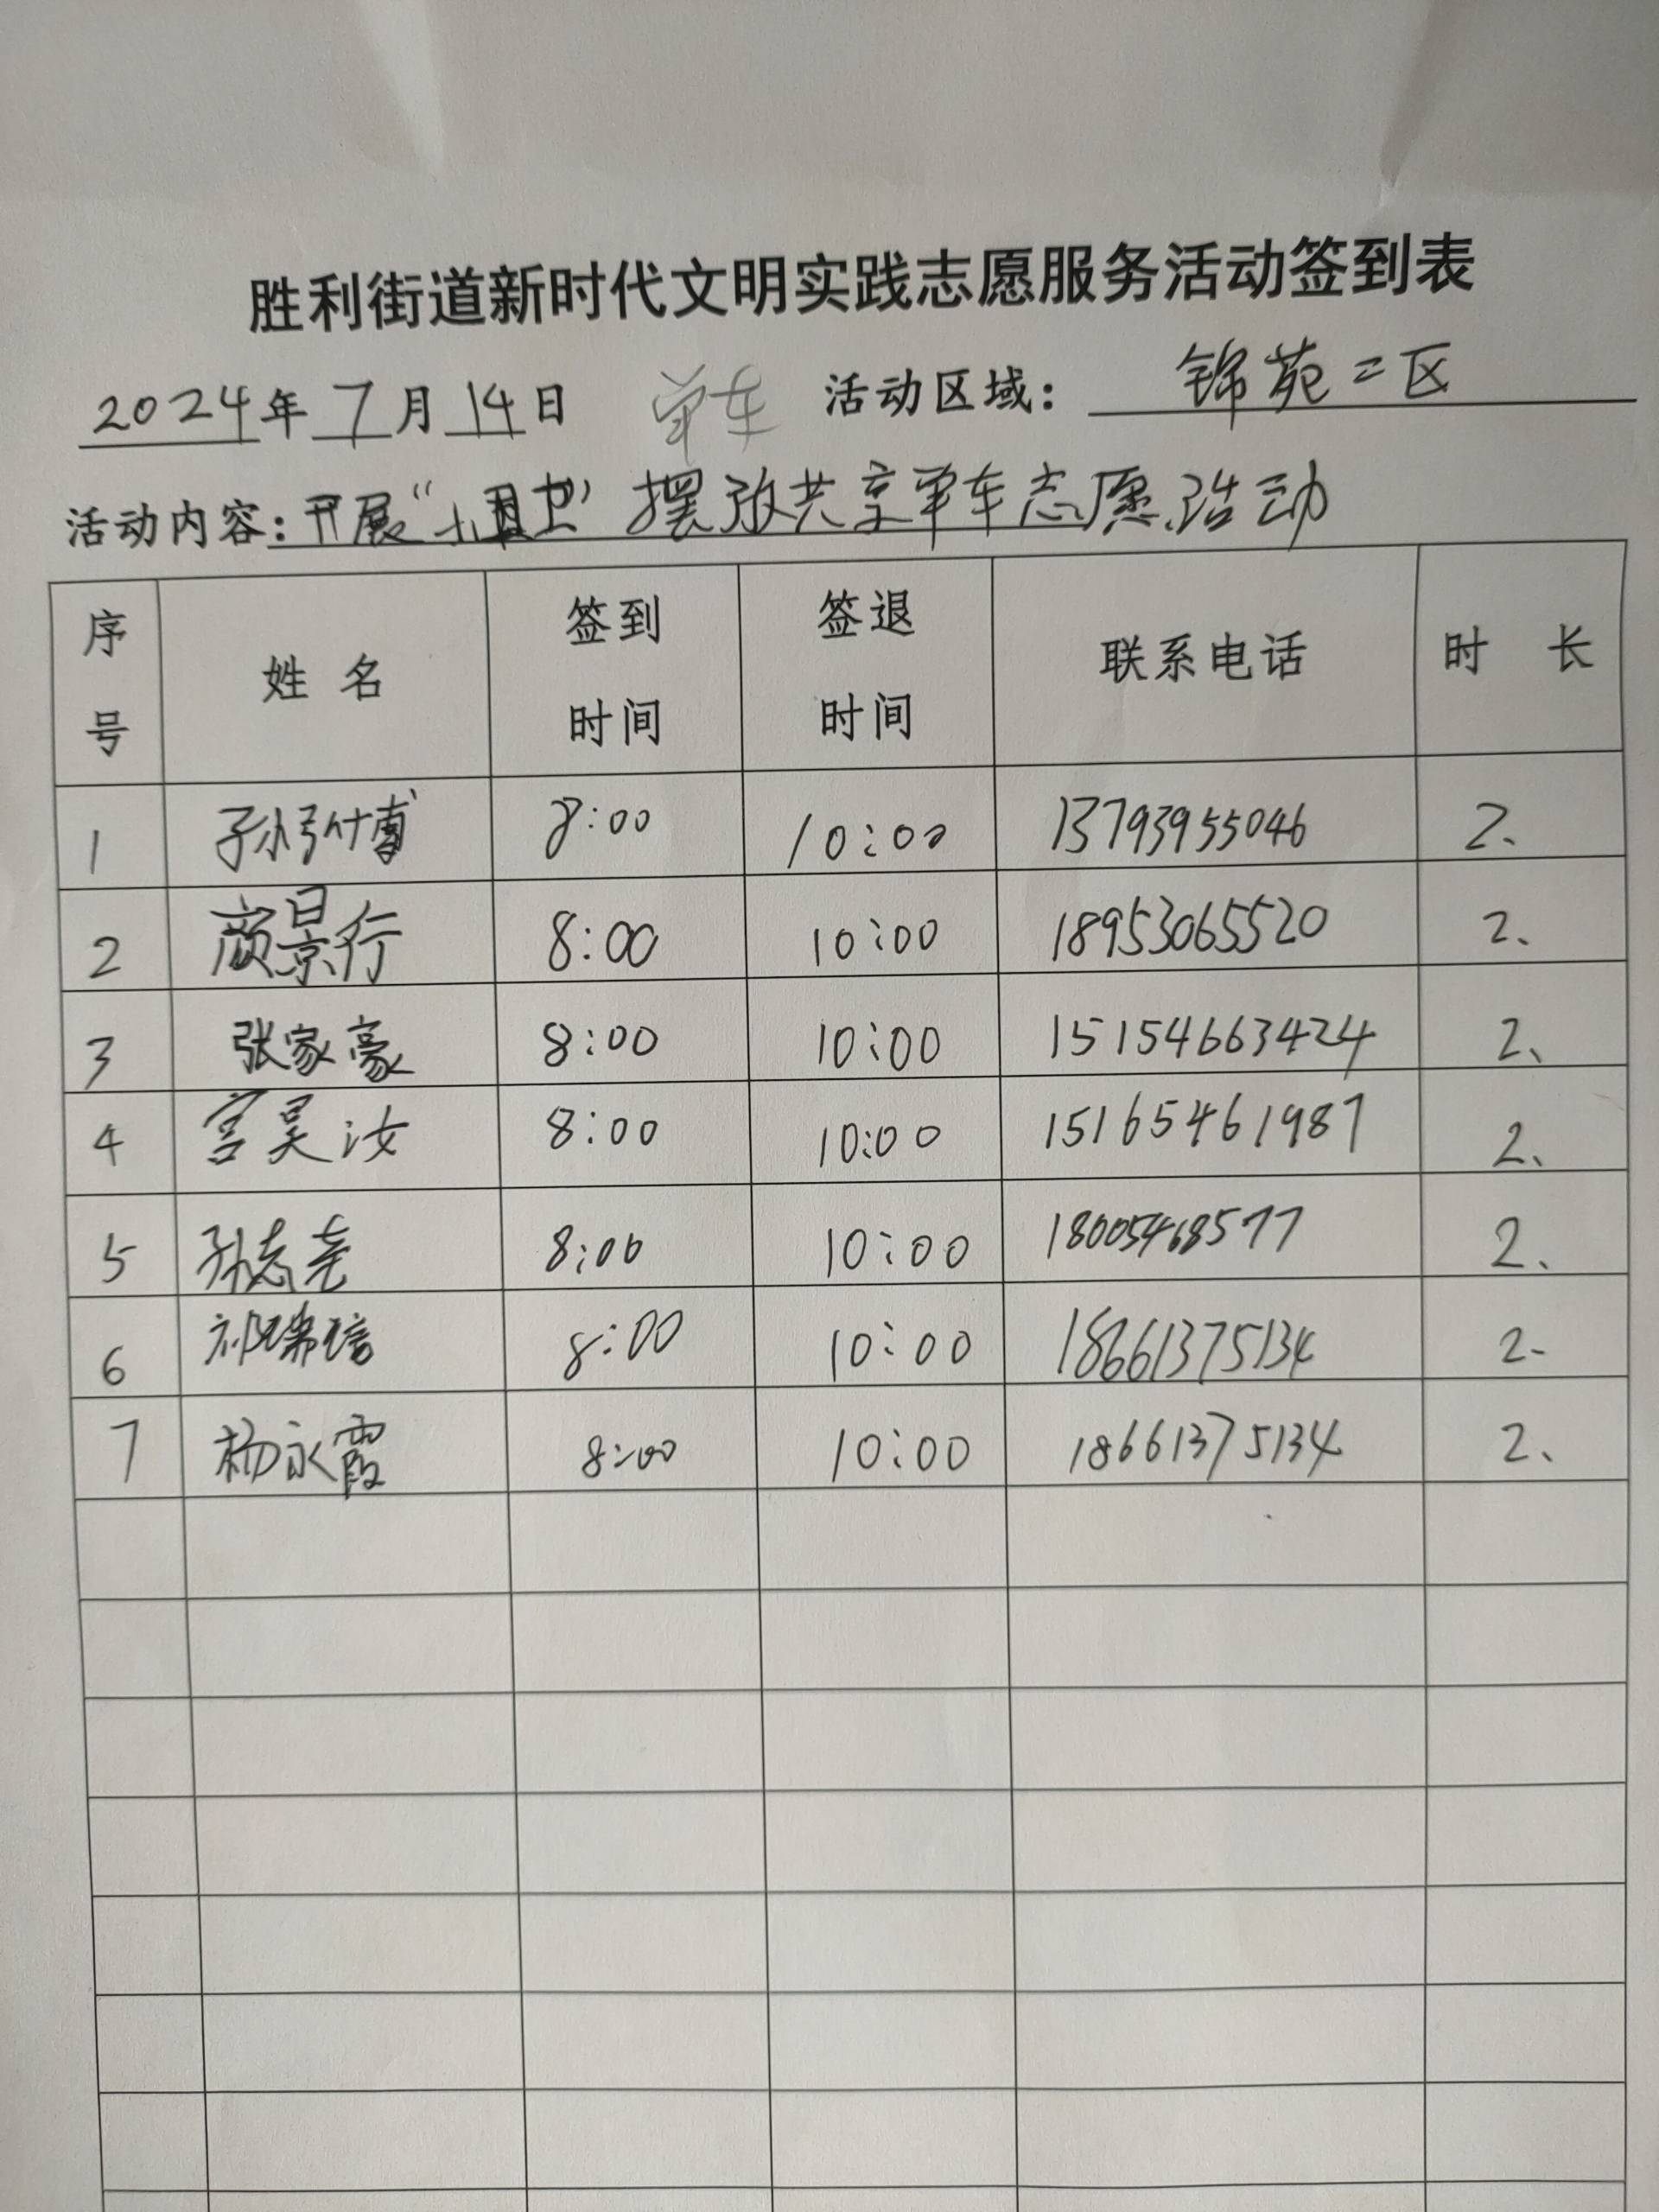 胜利街道新时代文明实践志愿服务活动签到表
2024年7月14日 单车 活动区域：锦苑二区
活动内容：开展“ ”摆放共享单车志愿活动
序号 姓名 签到时间 签退时间 联系电话 时长
1 8:00 10:00 13793955046 2、
2 颜景行 8:00 10:00 18953065520 2、
3 张家豪 8:00 10:00 15154663424 2、
4 宫昊汝 8:00 10:00 15165461987 2、
5 孙志尧 8:00 10:00 18005468577 2、
6 8:00 10:00 18661375134 2-
7 杨永霞 8:00 10:00 18661375134 2、